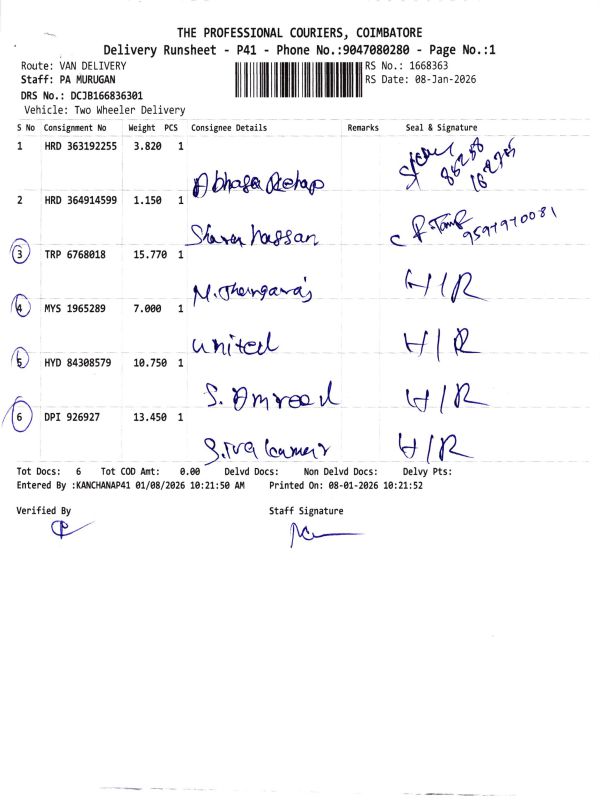 THE PROFESSIONAL COURIERS, COIMBATORE
Delivery Runsheet - P41 - Phone No.:9047080280 - Page No.:1
Route: VAN DELIVERY RS No.: 1668363
Staff: PA MURUGAN RS Date: 08-Jan-2026
DRS No.: DCJB166836301
Vehicle: Two Wheeler Delivery
S No Consignment No Weight PCS Consignee Details Remarks Seal & Signature
1 HRD 363192255 3.820 1
2 HRD 364914599 1.150 1
Hassan 9597970081
3 TRP 6768018 15.770 1
H/R
4 MYS 1965289 7.000 1
United H/R
5 HYD 84308579 10.750 1
H/R
6 DPI 926927 13.450 1
H/R
Tot Docs: 6 Tot COD Amt: 0.00 Delvd Docs: Non Delvd Docs: Delvy Pts:
Entered By :KANCHANAP41 01/08/2026 10:21:50 AM Printed On: 08-01-2026 10:21:52
Verified By Staff Signature